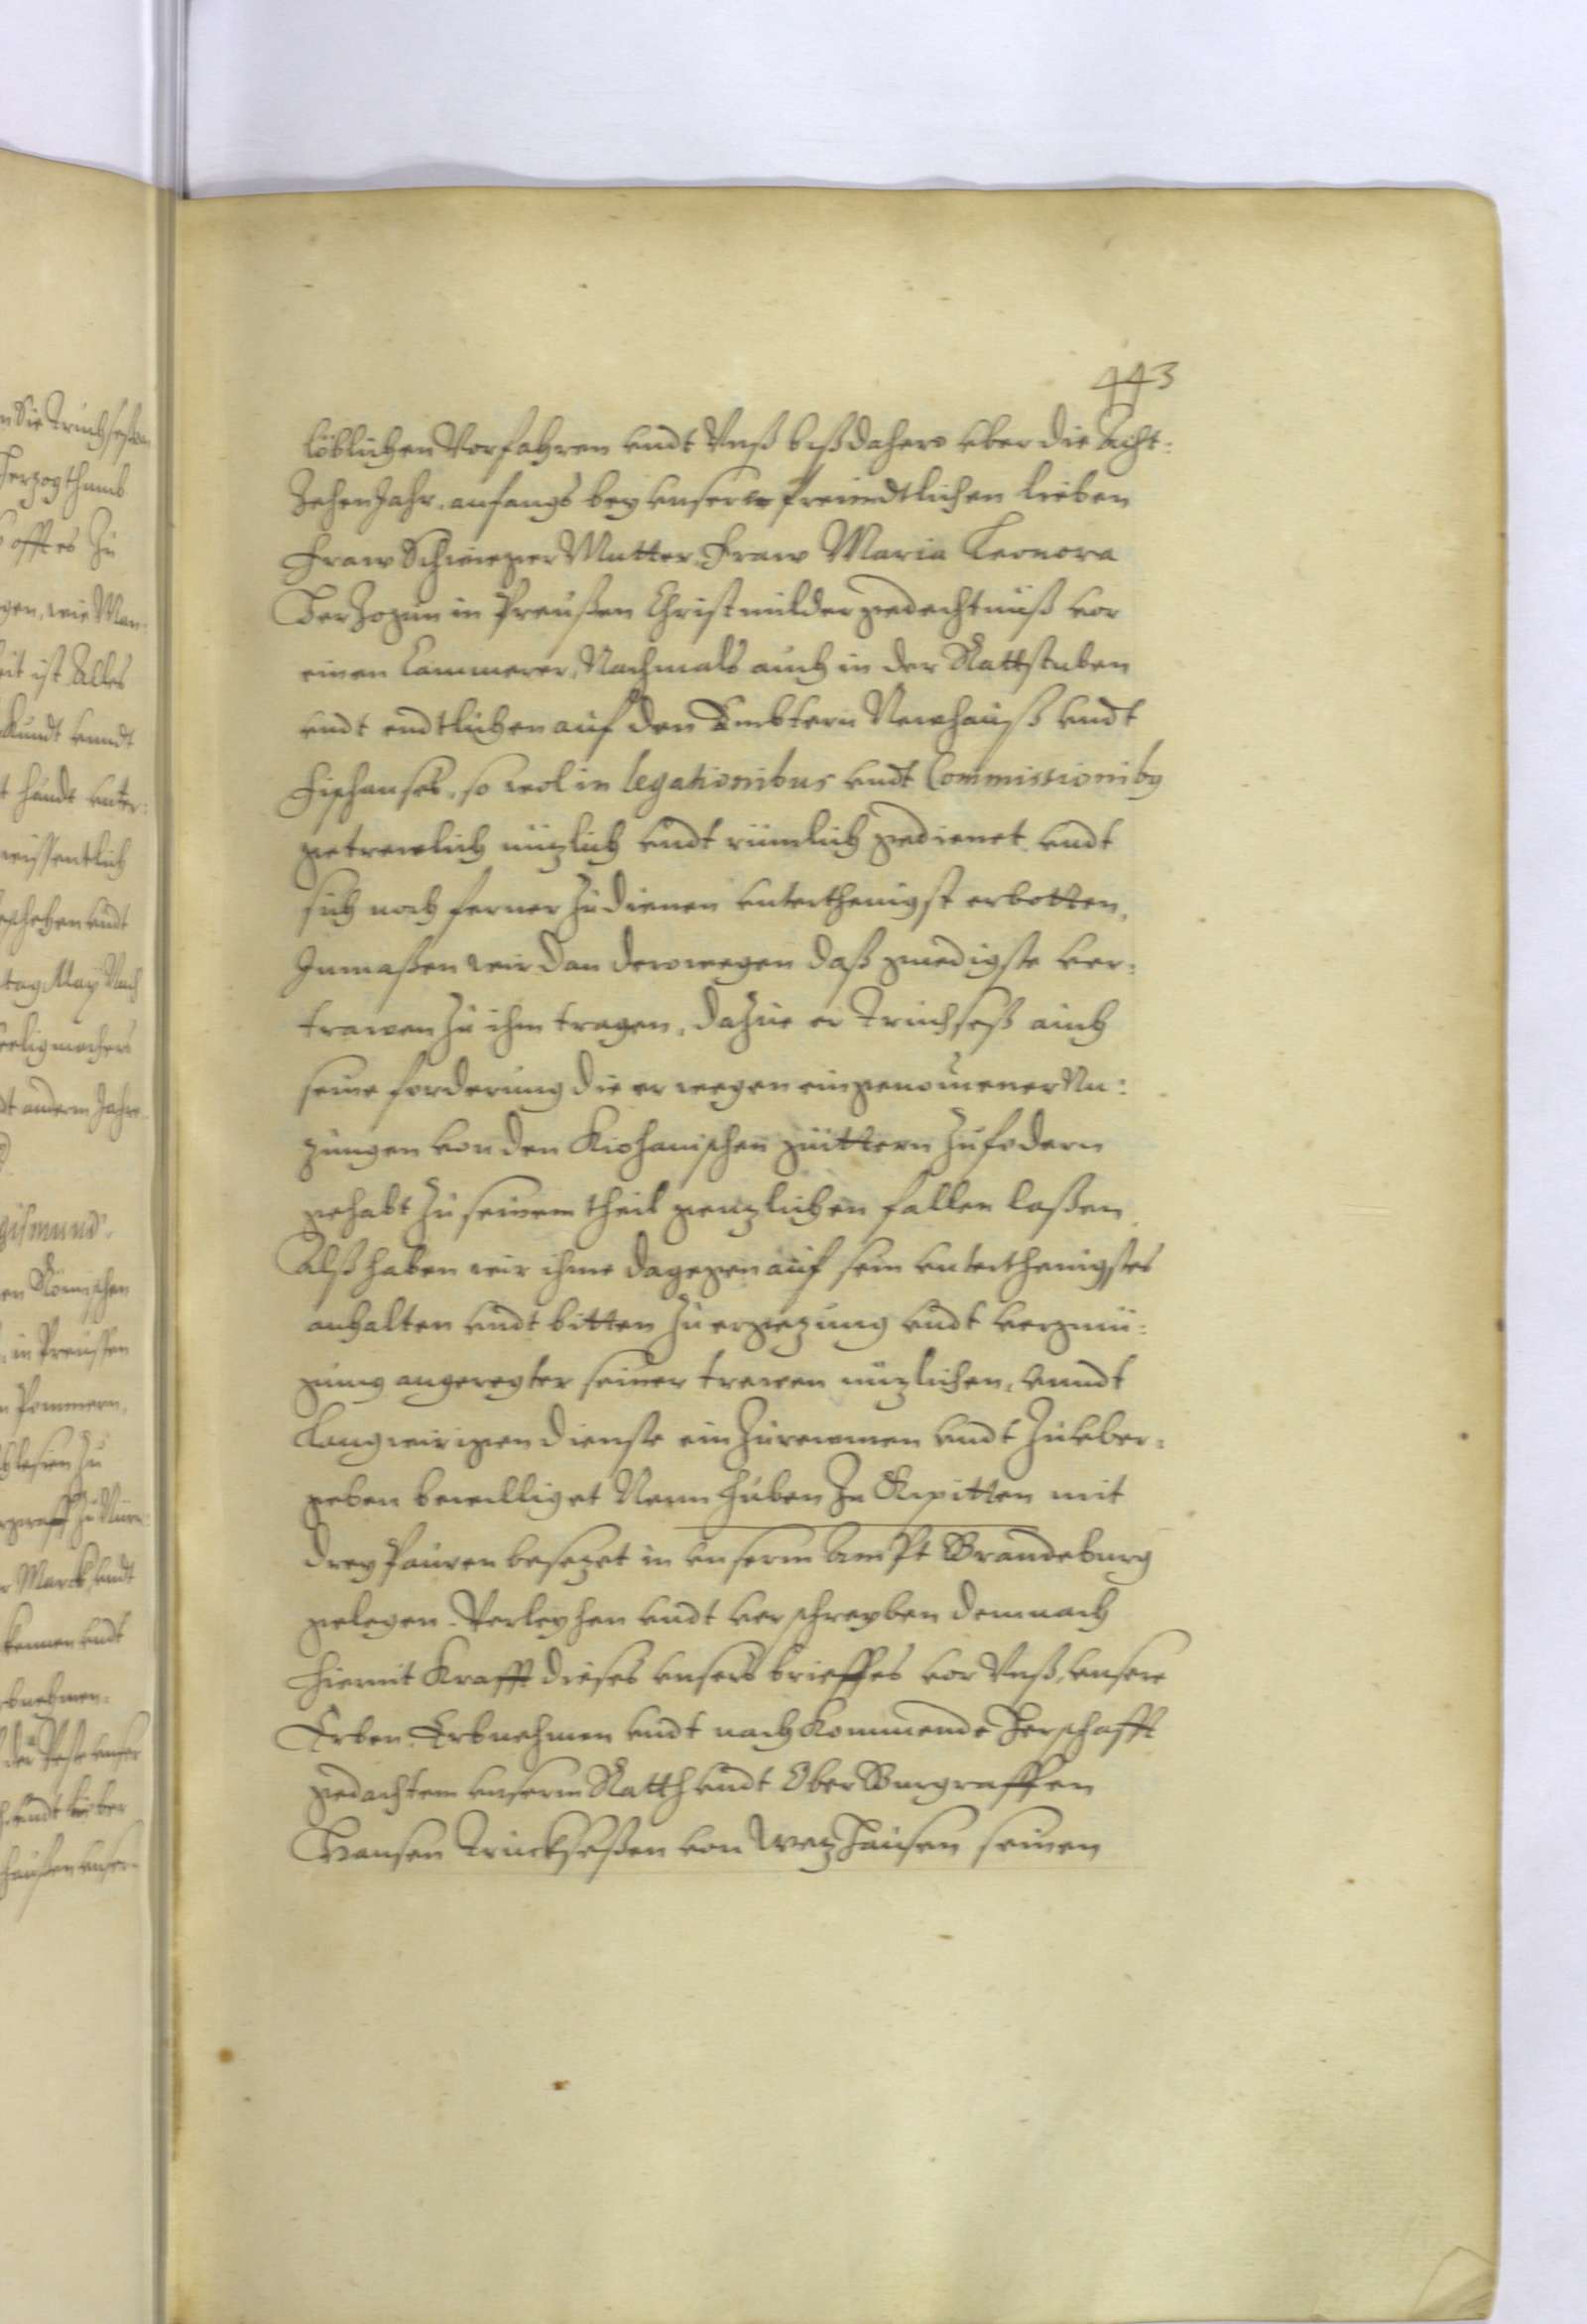 443
löblichen Vorfahren vndt Vnß biß dahero vber die Acht-
Zehen Jahr, anfangs bey vnserer freundtlichen lieben
Fraw Schwieger Mutter, Fraw Maria Leonora
Herzogin in Preußen Christmilder gedechtnüß vor
einen Cammerer, Nachmals auch in der Rattstuben
vndt endtlichen auf den Embtern Newhauß vndt
Fischauses, so wol in legationibus vndt Commissionibus
getrewlich nüzlich vndt rümlich gedienet vndt
sich noch ferner zu dienen vnterthenigst erbotten,
Inmaßen wir dan derowegen daß gnedigste ver-
trawen zu ihm tragen, dazue er Truchseß auch
seine forderung die er wegen eingenommener Nu-
zungen von den Kiohanischen güttern zufodern
gehabt zu seinem theil genzlichen fallen laßen
Alß haben wir ihme dagegen auf sein vnterthenigstes
anhalten vndt bitten zu ergezung vndt vergnü-
gung angeregter seiner trewen nüzlichen, vnndt
langwirigen dienste ein zurewmen vndt zu vber-
geben bewilliget Neun huben zu Kipitten mit
drey Pauren besezet in vnserm Ampt Brandeburg
gelegen. Verleyhen vndt verschreyben demnach
hiermit Krafft dieses vnsers brieffes vor Vnß, vnsere
Erben, Erbnehmen vndt nachkommende Herschafft
gedachtem vnserm Ratth vndt Ober Burgraffen
Hansen Truckseßen von Wetzhausen seinen